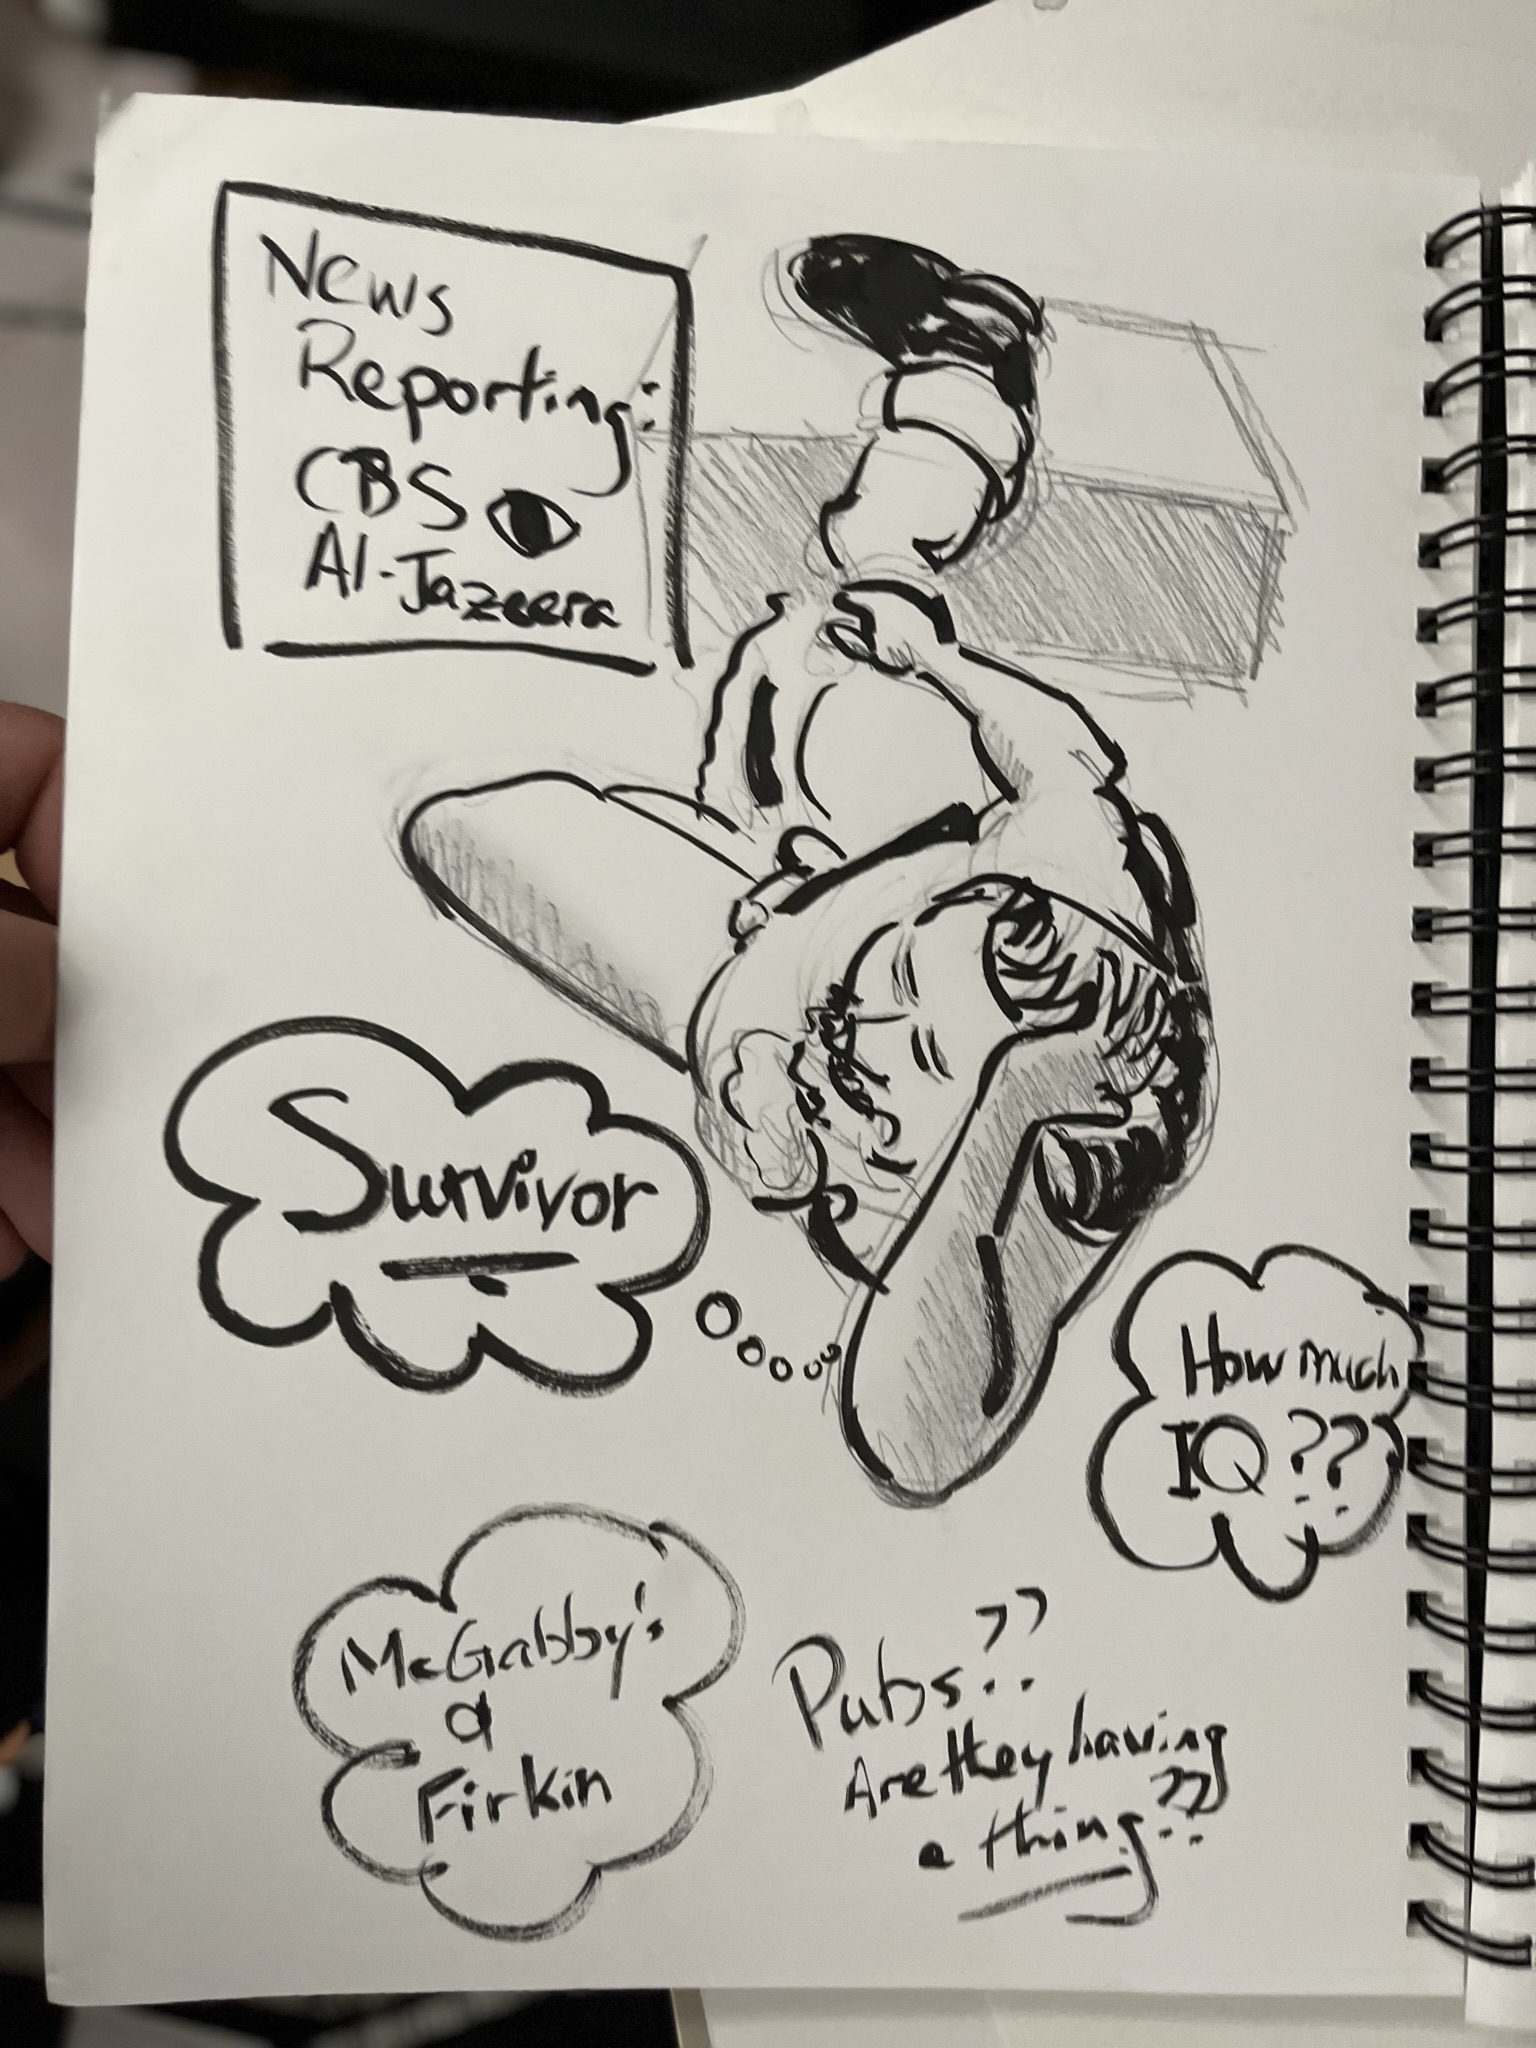 News
Reporting:
CBS
Al-Jazeera
Survivor
How much
IQ ??
McGabby's
&
Firkin
Pubs??
Are they having
a thing??